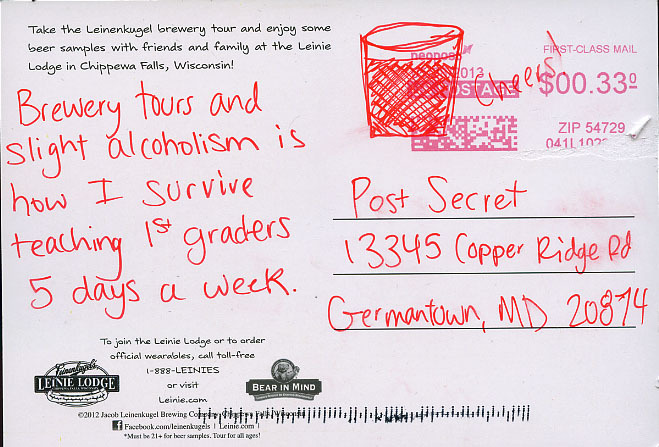 Take the Leinenkugel brewery tour and enjoy some
beer samples with friends and family at the Leinie
Lodge in Chippewa Falls, Wisconsin!
neopost
2013
POSTAGE
FIRST-CLASS MAIL
$00.33⁰
ZIP 54729
Cheers!
Brewery tours and
slight alcoholism is
how I survive
teaching 1st graders
5 days a week.
Post Secret
13345 Copper Ridge Rd
Germantown, MD 20874
To join the Leinie Lodge or to order
official wearables, call toll-free
1-888-LEINIES
or visit
Leinie.com
Leinenkugel's
LEINIE LODGE
BEAR IN MIND
©2012 Jacob Leinenkugel Brewing Company, Chippewa Falls, Wisconsin
Facebook.com/leinenkugels | Leinie.com
*Must be 21+ for beer samples. Tour for all ages!